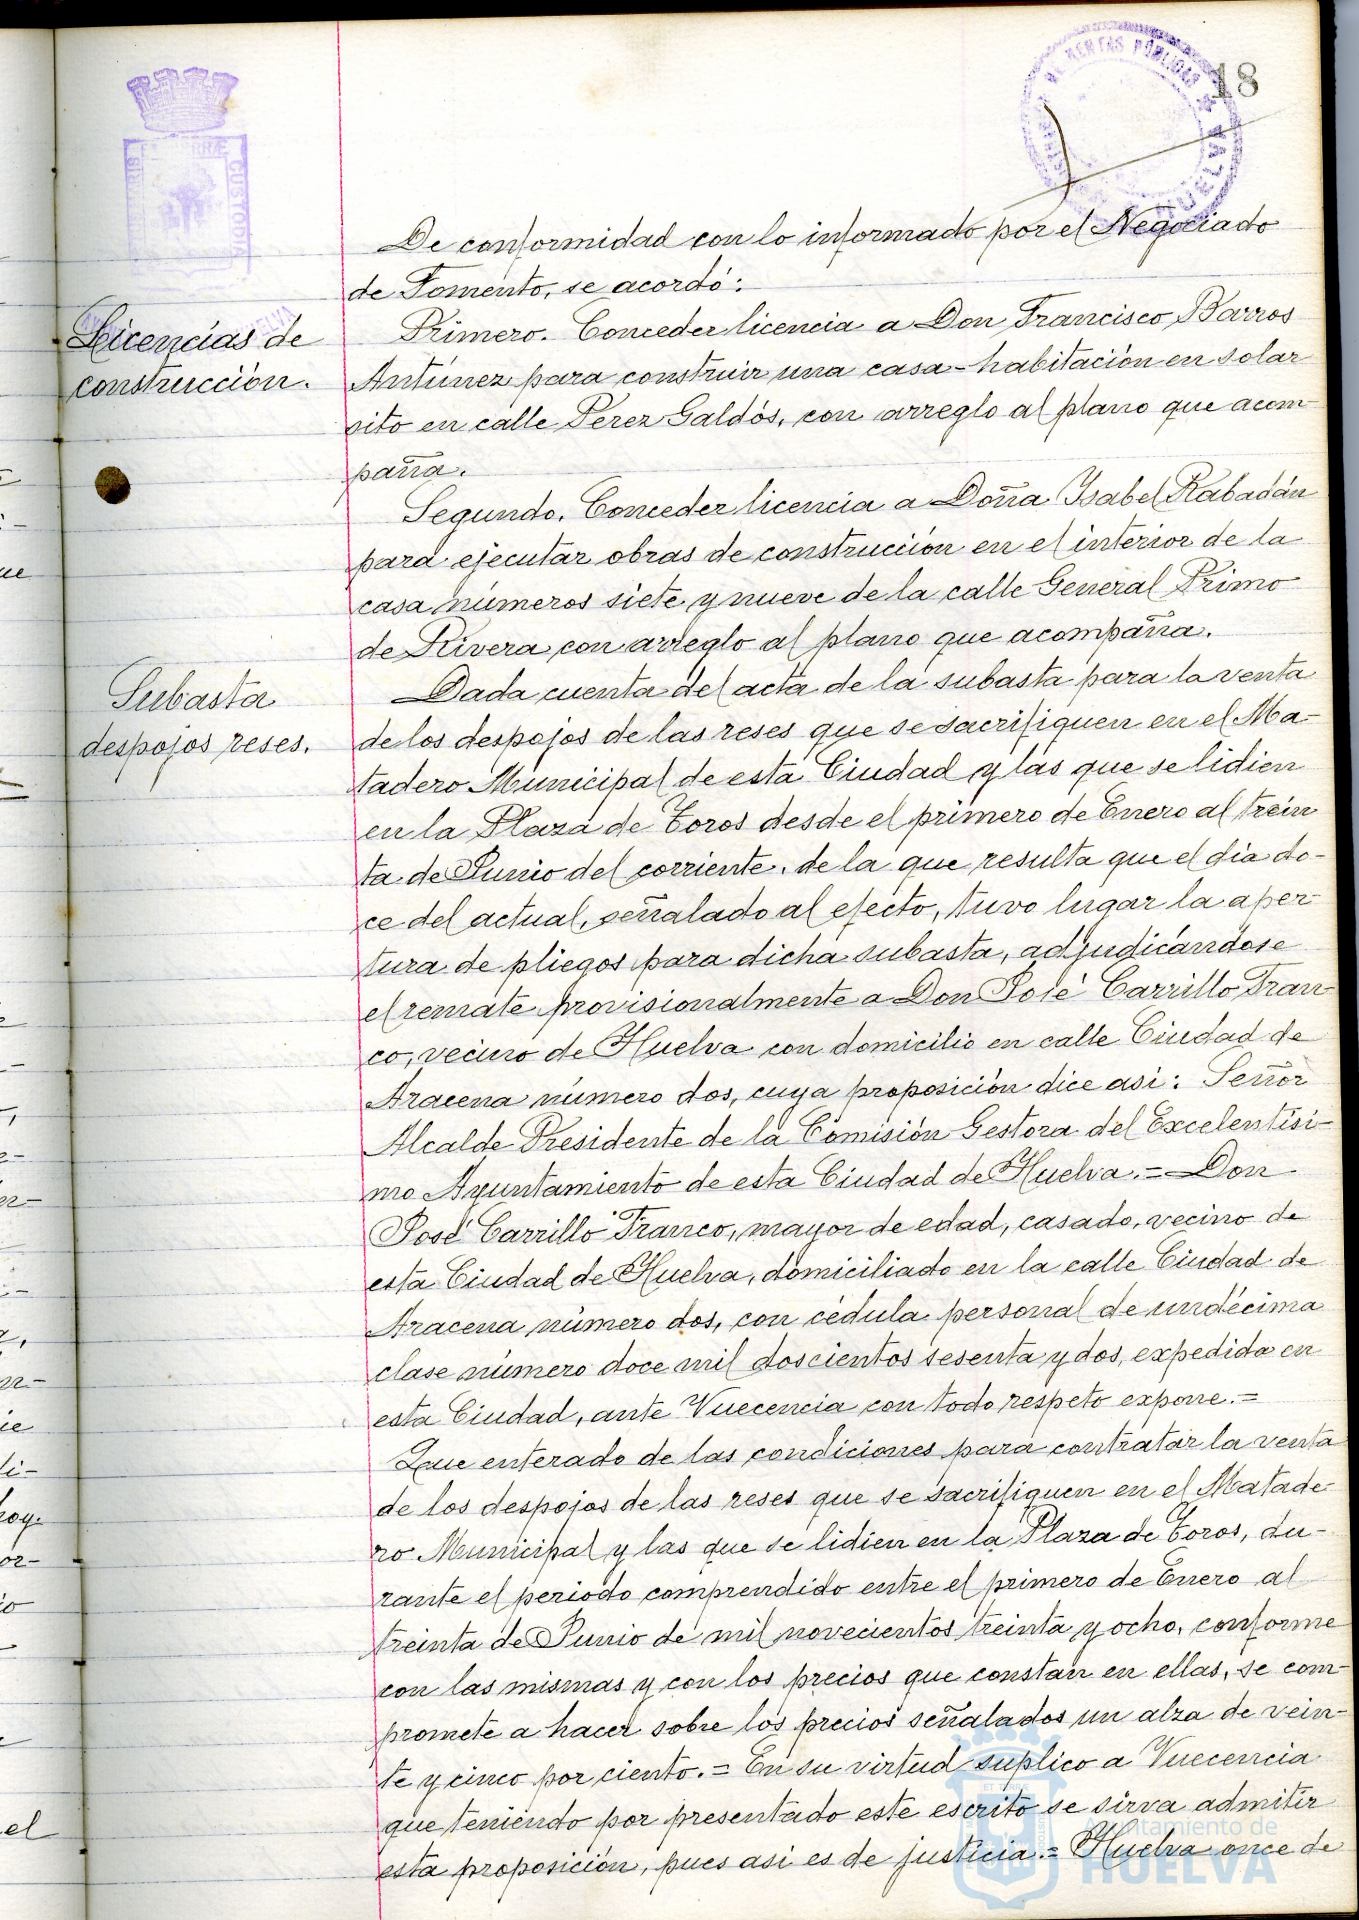 18
DE RENTAS PÚBLICAS
HUELVA
CUSTODIA
De conformidad con lo informado por el Negociado
de Fomento, se acordó:
Licencias de
construcción.
Primero. Conceder licencia a Don Francisco Barros
Antúnez para construir una casa-habitación en solar
sito en calle Perez Galdós, con arreglo al plano que acom-
paña.
Segundo. Conceder licencia a Doña Ysabel Rabadán
para ejecutar obras de construcción en el interior de la
casa números siete y nueve de la calle General Primo
de Rivera con arreglo al plano que acompaña.
Subasta
despojos reses.
Dada cuenta del acta de la subasta para la venta
de los despojos de las reses que se sacrifiquen en el Ma-
tadero Municipal de esta Ciudad y las que se lidien
en la Plaza de Toros desde el primero de Enero al trein
ta de Junio del corriente, de la que resulta que el dia do-
ce del actual, señalado al efecto, tuvo lugar la aper-
tura de pliegos para dicha subasta, adjudicándose
el remate provisionalmente a Don José Carrillo Fran-
co, vecino de Huelva con domicilio en calle Ciudad de
Aracena número dos, cuya proposición dice asi: Señor
Alcalde Presidente de la Comisión Gestora del Excelentísi-
mo Ayuntamiento de esta Ciudad de Huelva.= Don
José Carrillo Franco, mayor de edad, casado, vecino de
esta Ciudad de Huelva, domiciliado en la calle Ciudad de
Aracena número dos, con cédula personal de undécima
clase número doce mil doscientos sesenta y dos, expedida en
esta Ciudad, ante Vuecencia con todo respeto expone.=
Que enterado de las condiciones para contratar la venta
de los despojos de las reses que se sacrifiquen en el Matade-
ro Municipal y las que se lidien en la Plaza de Toros, du-
rante el periodo comprendido entre el primero de Enero al
treinta de Junio de mil novecientos treinta y ocho, conforme
con las mismas y con los precios que constan en ellas, se com-
promete a hacer sobre los precios señalados un alza de vein-
te y cinco por ciento.= En su virtud suplico a Vuecencia
que teniendo por presentado este escrito se sirva admitir
esta proposición, pues asi es de justicia.= Huelva once de
Ayuntamiento de
HUELVA